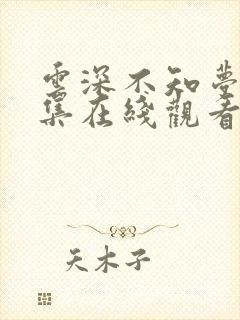 雲深不知夢
集在綫觀看
天木子